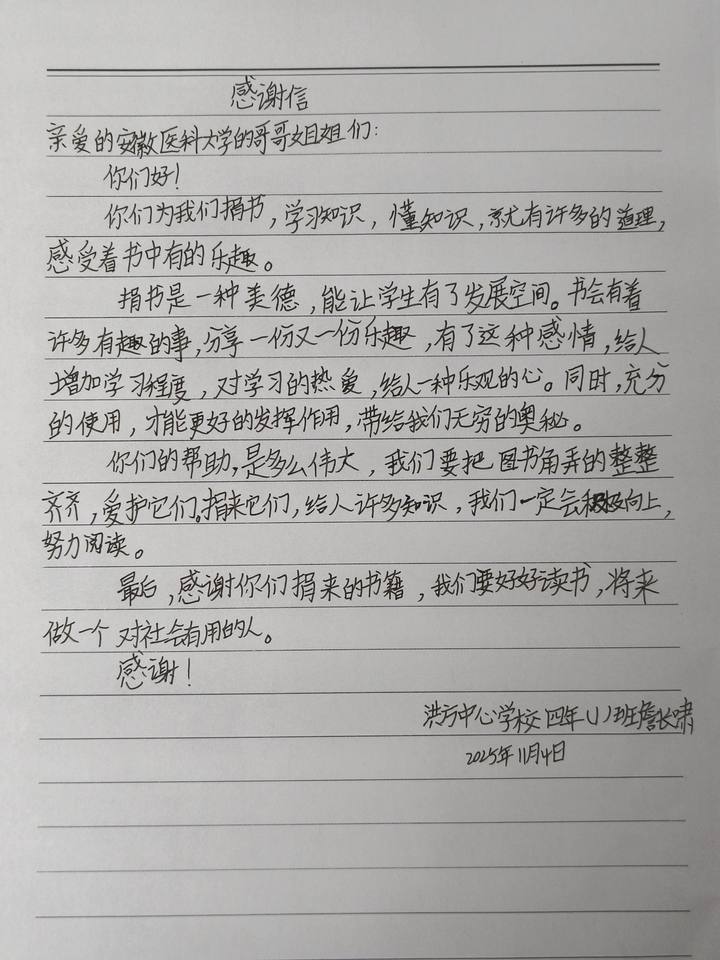 感谢信
亲爱的安徽医科大学的哥哥姐姐们：
你们好！
你们为我们捐书，学习知识，懂知识，就有许多的道理，
感受着书中有的乐趣。
捐书是一种美德，能让学生有了发展空间。书会有着
许多有趣的事，分享一份又一份乐趣，有了这种感情，给人
增加学习程度，对学习的热爱，给人一种乐观的心。同时，充分
的使用，才能更好的发挥作用，带给我们无穷的奥秘。
你们的帮助，是多么伟大，我们要把图书角弄的整整
齐齐，爱护它们。捐来它们，给人许多知识，我们一定会积极向上，
努力阅读。
最后，感谢你们捐来的书籍，我们要好好读书，将来
做一个对社会有用的人。
感谢！
洪方中心学校四年（1）班詹长啸
2025年11月4日